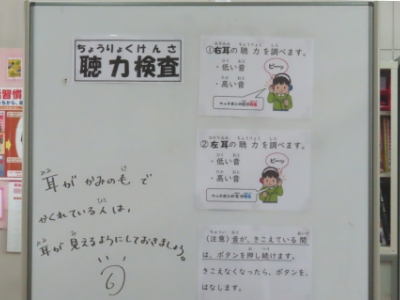 ちょうりょくけんさ
聴力検査
①右耳の聴力を調べます。
・低い音
・高い音
ピーッ
②左耳の聴力を調べます。
・低い音
・高い音
ピーッ
(注意)音が、きこえている間
は、ボタンを押し続けます。
きこえなくなったら、ボタンを、
はなします。
耳がかみの毛で
かくれている人は、
耳が見えるようにしておきましょう。